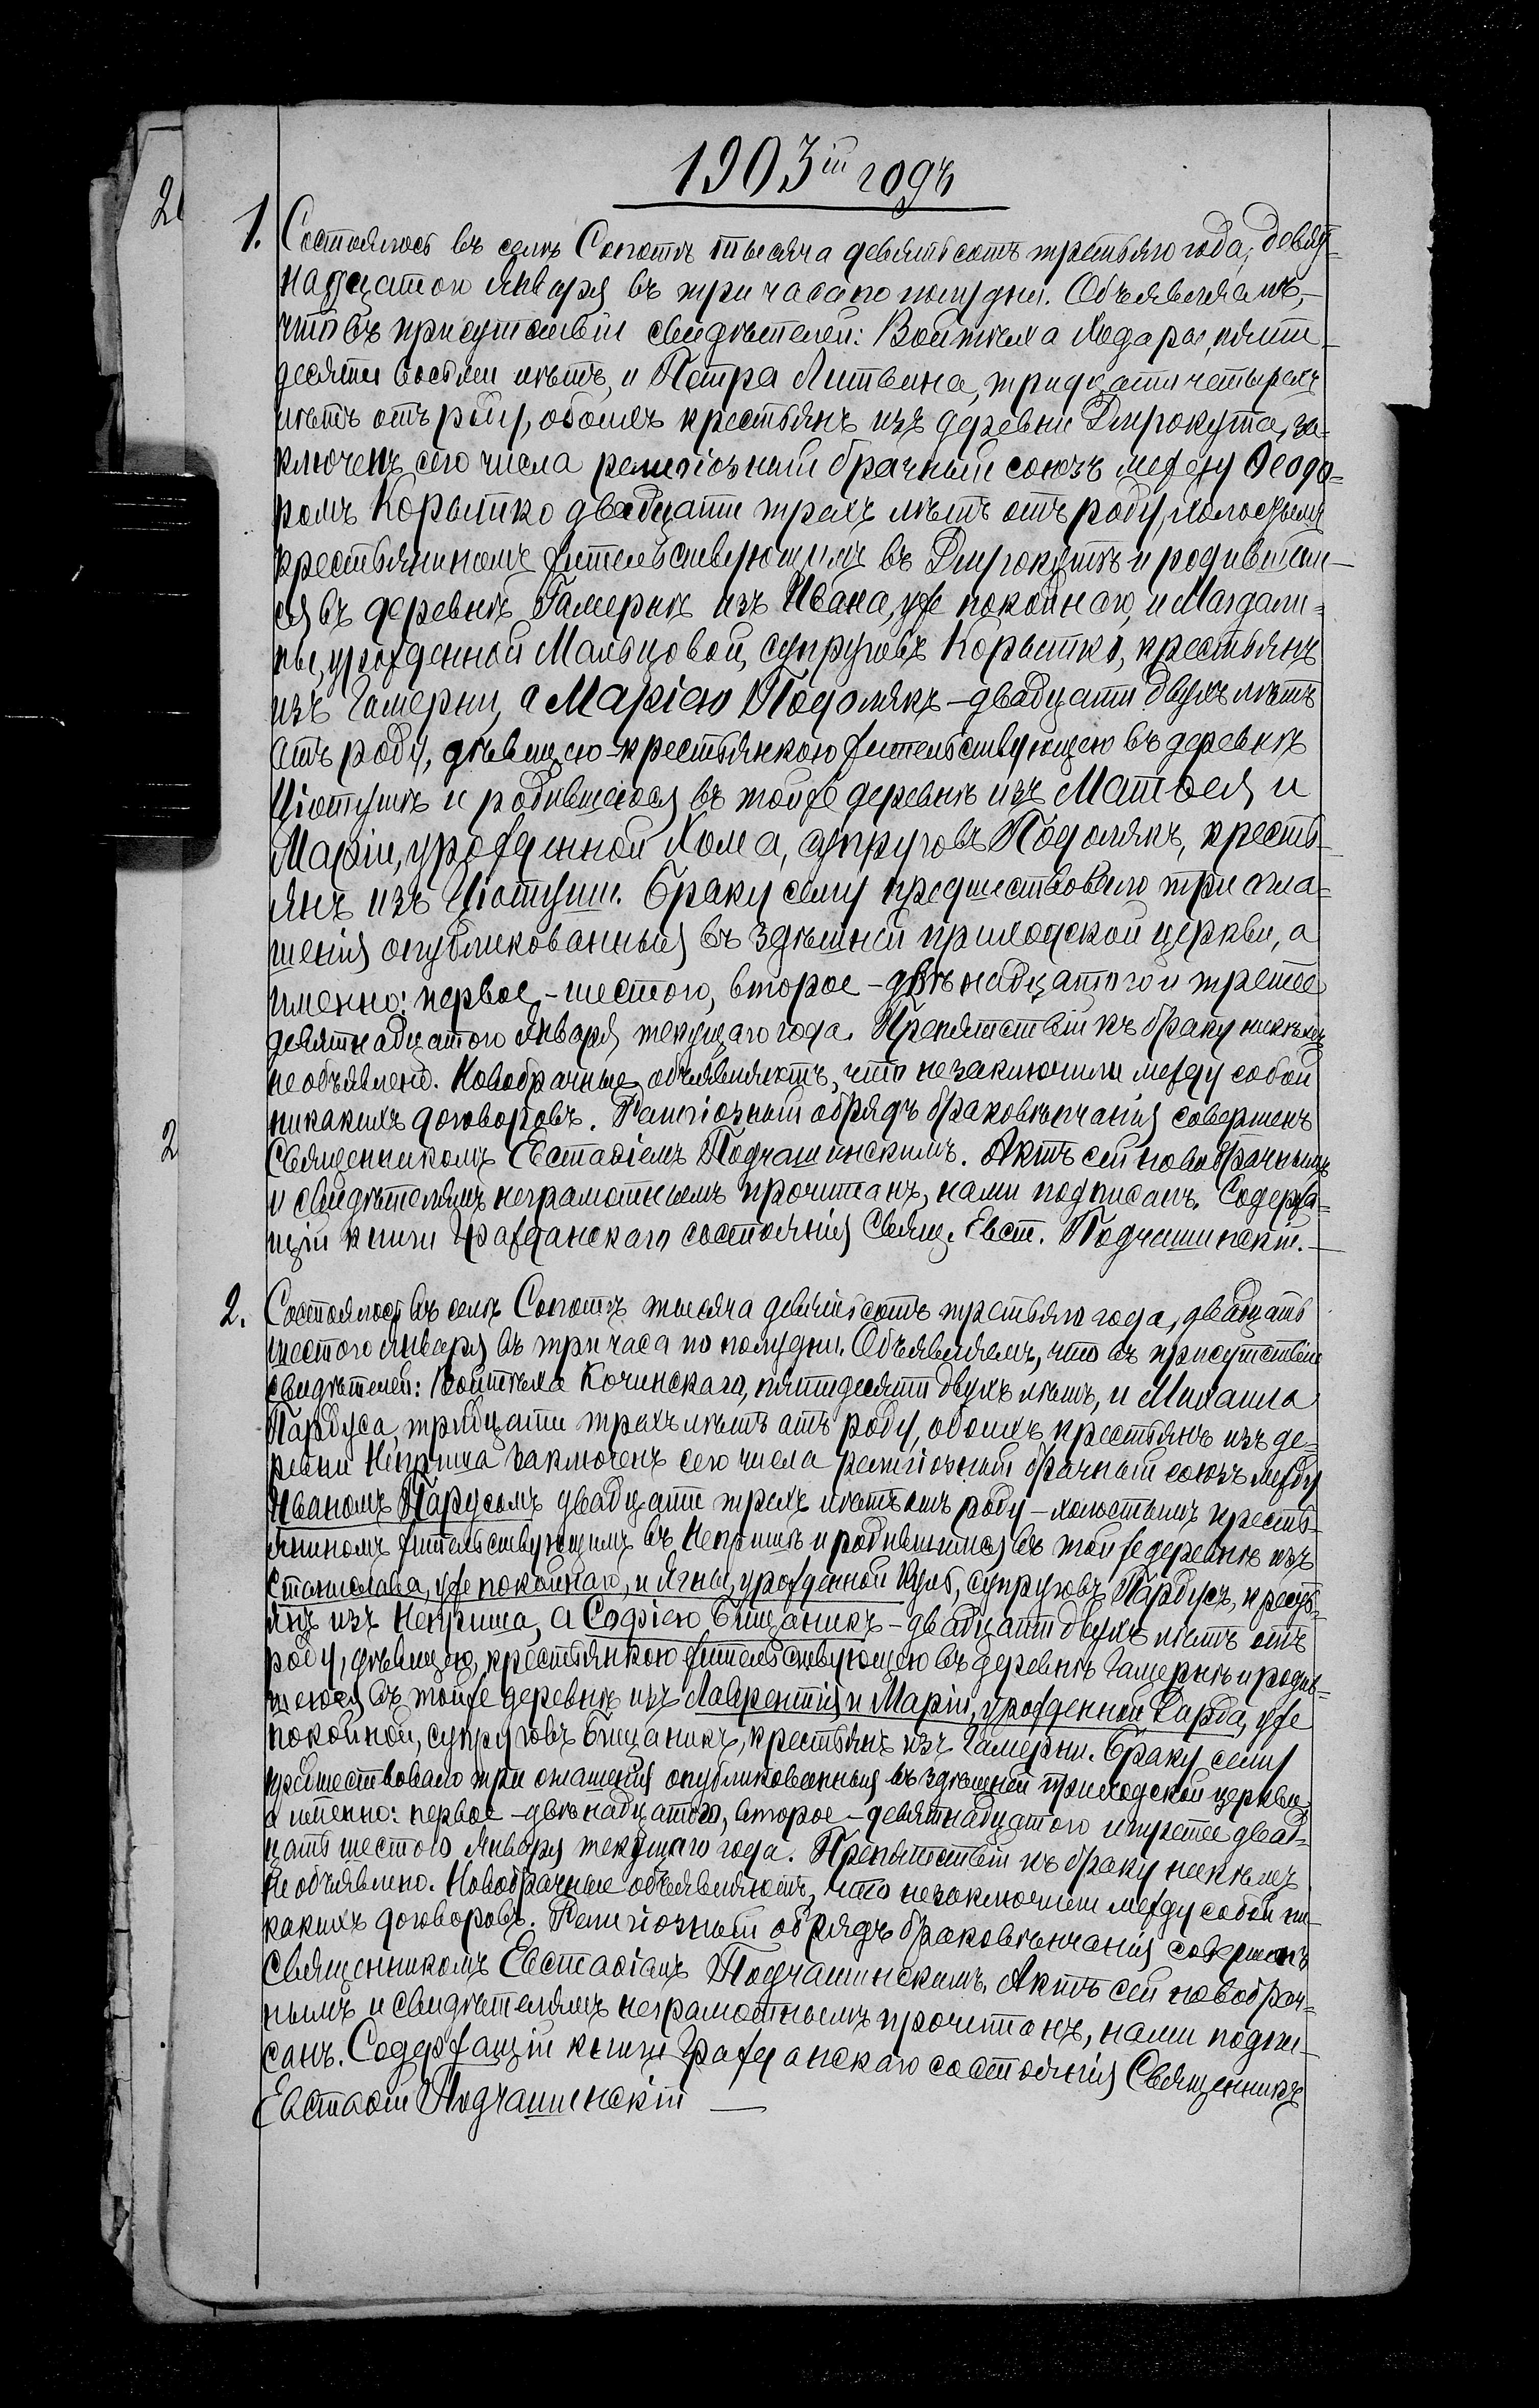 1903ій годъ
1. Состоялось въ селѣ Сопотѣ тысяча девятьсотъ третьяго года, девят-
надцатого Января въ три часа по полудни. Объявляемъ,-
что въ присутствіи свидѣтелей: Войтѣха Ходары, пяти-
десяти восьми лѣтъ, и Петра Литвина, тридцати четырехъ
лѣтъ отъ роду, обоихъ крестьянъ изъ деревни Дирокута, за-
ключенъ сего числа религіозный брачный союзъ между Ѳеодо-
ромъ Корытко двадцати трехъ лѣтъ отъ роду, холостымъ
крестьяниномъ жительствующимъ въ Дирокутѣ и родившим-
ся въ деревнѣ Гамернѣ изъ Ивана, уже покойнаго, и Магдали-
ны, урожденной Мальцовой, супруговъ Корытко, крестьянъ
изъ Гамерни, а Маріею Подолякъ - двадцати двухъ лѣтъ
отъ роду, дѣвицею-крестьянкою жительствующею въ деревнѣ
Цютушѣ и родившеюся въ тойже деревнѣ изъ Матѳея и
Маріи, урожденной Хома, супруговъ Подолякъ, кресть-
янъ изъ Цютуши. Браку сему предшествовало три огла-
шенія опубликованныя въ здѣшней приходской церкви, а
именно: первое - шестого, второе - двѣнадцатого и третее
девятнадцатого Января текущаго года. Препятствій къ браку никѣмъ
не объявлено. Новобрачные объявляютъ, что незаключили между собой
никакихъ договоровъ. Религіозный обрядъ браковѣнчанія совершенъ
Священникомъ Евстаѳіемъ Подчашинскимъ. Актъ сей новобрачнымъ
и свидѣтелямъ неграмотнымъ прочитанъ, нами подписанъ. Содержа-
щій книги Гражданскаго состоянія Свящ. Евст. Подчашинскій.-
2. Состоялось въ селѣ Сопотѣ тысяча девятьсотъ третьяго года, двадцать
шестого Января въ три часа по полудни. Объявляемъ, что въ присутствіи
свидѣтелей: Войтѣха Кочинскаго, пятидесяти двухъ лѣтъ, и Михаила
Пардуса, тридцати трехъ лѣтъ отъ роду, обоихъ крестьянъ изъ де-
ревни Неприша заключенъ сего числа религіозный брачный союзъ между
Иваномъ Пардусомъ двадцати трехъ лѣтъ отъ роду - холостымъ кресть-
яниномъ жительствующимъ въ Непришѣ и родившимся въ тойже деревнѣ изъ
Станислава, уже покойнаго, и Ягны, урожденной Куль, супруговъ Пардусъ, кресть-
янъ изъ Неприша, а Софіею Бищаникъ - двадцати двухъ лѣтъ отъ
роду, дѣвицею, крестьянкою жительствующею въ деревнѣ Гамернѣ и родив-
шеюся въ тойже деревнѣ изъ Лаврентія и Маріи, урожденной Карба, уже
покойной, супруговъ Бищаникъ, крестьянъ изъ Гамерни. Браку сему
предшествовало три оглашенія опубликованныя въ здѣшней приходской церкви,
а именно: первое - двѣнадцатого, второе - девятнадцатого и третее двад-
цать шестого Января текущаго года. Препятствій къ браку никѣмъ
не объявлено. Новобрачные объявляютъ, что незаключили между собой ни-
какихъ договоровъ. Религіозный обрядъ браковѣнчанія совершенъ
Священникомъ Евстаѳіемъ Подчашинскимъ. Актъ сей новобрач-
нымъ и свидѣтелямъ неграмотнымъ прочитанъ, нами подпи-
санъ. Содержащій книги Гражданскаго состоянія Священникъ
Евстаѳій Подчашинскій -